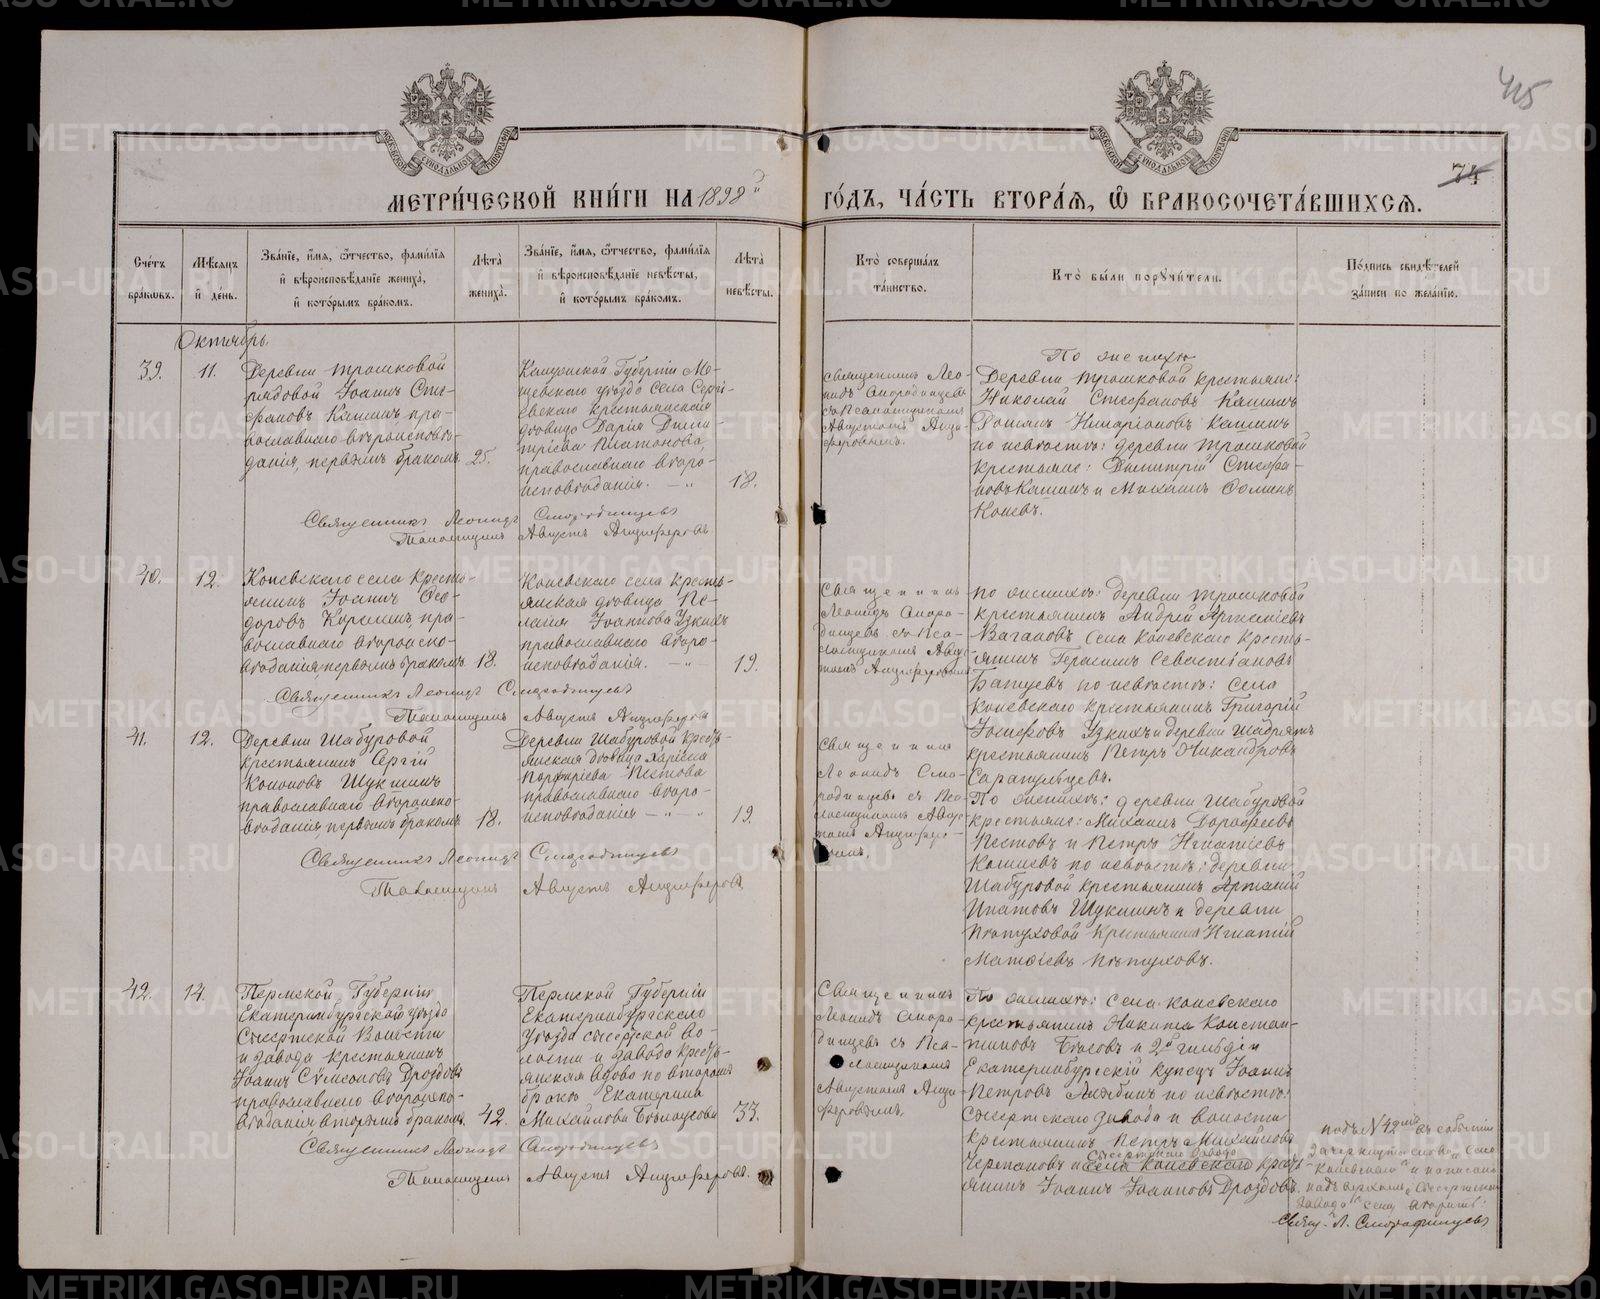 415
74
МЕТРИ́ЧЕСКОЙ КНИ́ГИ НА 1898й ГО́ДЪ, ЧА́СТЬ ВТОРА́Я, Ѿ БРАКОСОЧЕТА́ВШИХСЯ.
Сче́тъ бра́ковъ.
Мѣ́сяцъ и҆ де́нь.
Зва́нїе, и҆́мя, ѻ҆́тчество, фами́лїя
и҆ вѣроисповѣ́данїе жениха̀,
и҆ кото́рымъ бра́комъ.
Лѣ́та жениха̀.
Зва́нїе, и҆́мя, ѻ҆́тчество, фами́лїя
и҆ вѣроисповѣ́данїе невѣ́сты,
и҆ кото́рымъ бра́комъ.
Лѣ́та невѣ́сты.
Кто̀ соверша́лъ та́инство.
Кто̀ бы́ли поручи́тели.
По́дпись свидѣ́телей за́писи по жела́нїю.
Октябрь.
39.
11.
Деревни Трошковой
рядовой Іоаннъ Сте-
фановъ Кашинъ, пра-
вославнаго вѣроисповѣ-
данія, первымъ бракомъ.
25.
Калужской Губерніи Ме-
щевскаго уѣзда Села Серги-
евскаго крестьянская
дѣвица Дарія Дими-
тріева Платонова,
православнаго вѣро-
исповѣданія.
18.
Священникъ Леонидъ Смородинцевъ
Псаломщикъ Августъ Анциферовъ
Священникъ Лео-
нидъ Смородинцевъ
съ Псаломщикомъ
Августомъ Анци-
феровымъ.
По женихѣ
Деревни Трошковой крестьяне:
Николай Стефановъ Кашинъ
Кашинъ
по невѣстѣ: деревни Трошковой
крестьяне: Димитрій Стефа-
новъ Кашинъ и Михаилъ
40.
12.
Коневскаго села кресть-
янинъ Іоаннъ Ѳео-
доровъ пра-
вославнаго вѣроиспо-
вѣданія, первымъ бракомъ.
18.
Коневскаго села кресть-
янская дѣвица Пе-
лагія Іоаннова Узкихъ
православнаго вѣро-
исповѣданія.
19.
Священникъ Леонидъ Смородинцевъ
Псаломщикъ Августъ Анциферовъ
Священникъ
Леонидъ Сморо-
динцевъ съ Пса-
ломщикомъ Авгу-
стомъ Анциферовымъ
По женихѣ: деревни Трошковой
крестьянинъ Андрей Артеміевъ
Вагановъ села Коневскаго кресть-
янинъ Герасимъ Севастіановъ
по невѣстѣ: села
Коневскаго крестьянинъ Григорій
Іосифовъ Узкихъ и деревни
крестьянинъ Петръ Никандровъ
Сарапульцевъ.
41.
12.
Деревни Шабуровой
крестьянинъ Сергій
Кононовъ Щукинъ
православнаго вѣроиспо-
вѣданія, первымъ бракомъ.
18.
Деревни Шабуровой кресть-
янская дѣвица
Порфиріева Пестова
православнаго вѣро-
исповѣданія
19.
Священникъ Леонидъ Смородинцевъ
Псаломщикъ Августъ Анциферовъ
Священникъ
Леонидъ Смо-
родинцевъ съ Пса-
ломщикомъ Авгу-
стомъ Анциферо-
вымъ.
По женихѣ: деревни Шабуровой
крестьяне: Михаилъ Дороѳеевъ
Пестовъ и Петръ Игнатіевъ
по невѣстѣ: деревни
Шабуровой крестьянинъ
Ипатовъ Щукинъ и деревни
Пѣтуховой крестьянинъ Игнатій
Матѳіевъ Пѣтуховъ.
42.
14.
Пермской Губерніи
Екатеринбургской уѣзда
Сысертской Волости
и завода крестьянинъ
Іоаннъ Сѵмеоновъ Дроздовъ
православнаго вѣроиспо-
вѣданія вторымъ бракомъ.
42.
Пермской Губерніи
Екатеринбургскаго
уѣзда Сысертской Во-
лости и завода кресть-
янская вдова по второмъ
бракѣ Екатерина
Михайлова Бѣлоусова
33.
Священникъ Леонидъ Смородинцевъ
Псаломщикъ Августъ Анциферовъ.
Священникъ
Леонидъ Сморо-
динцевъ съ Пса-
ломщикомъ
Августомъ Анци-
феровымъ.
По женихѣ: Села Коневскаго
крестьянинъ Никита Констан-
тиновъ и 2й гильдіи
Екатеринбургскій купецъ Іоаннъ
Петровъ по невѣстѣ:
Сысертскаго завода и волости
крестьянинъ Петръ Михайловъ
Черепановъ и
Сысертскаго завода
села Коневскаго кресть-
янинъ Іоаннъ Іоанновъ Дроздовъ.
подъ №42мъ въ событіи
зачеркнуто слово „села
Коневскаго" и написано
надъ верхомъ „Сысертскаго
завода" сему вѣрить:
Свящ. Л. Смородинцевъ
METRIKI.GASO-URAL.RU